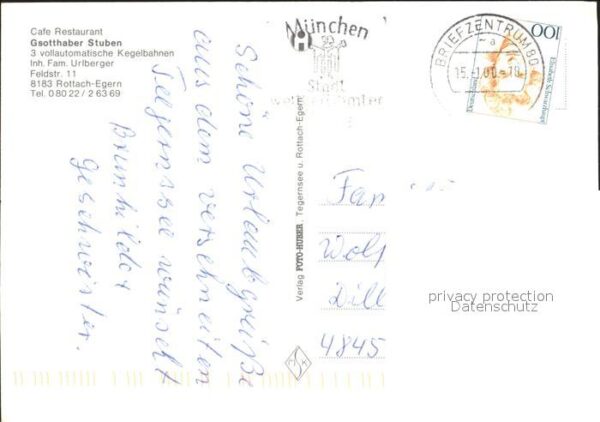 Cafe Restaurant
Gsotthaber Stuben
3 vollautomatische Kegelbahnen
Inh. Fam. Urlberger
Feldstr. 11
8183 Rottach-Egern
Tel. 0 80 22 / 2 63 69
Schöne Urlaubsgrüße
aus dem verschneiten
Tegernsee wünscht
Brunhilde
geschwister.
Verlag FOTO-HUBER, Tegernsee u. Rottach-Egern
München
Stadt
BRIEFZENTRUM 80
a
100
Fam
Wolf
Dill
4845
privacy protection
Datenschutz